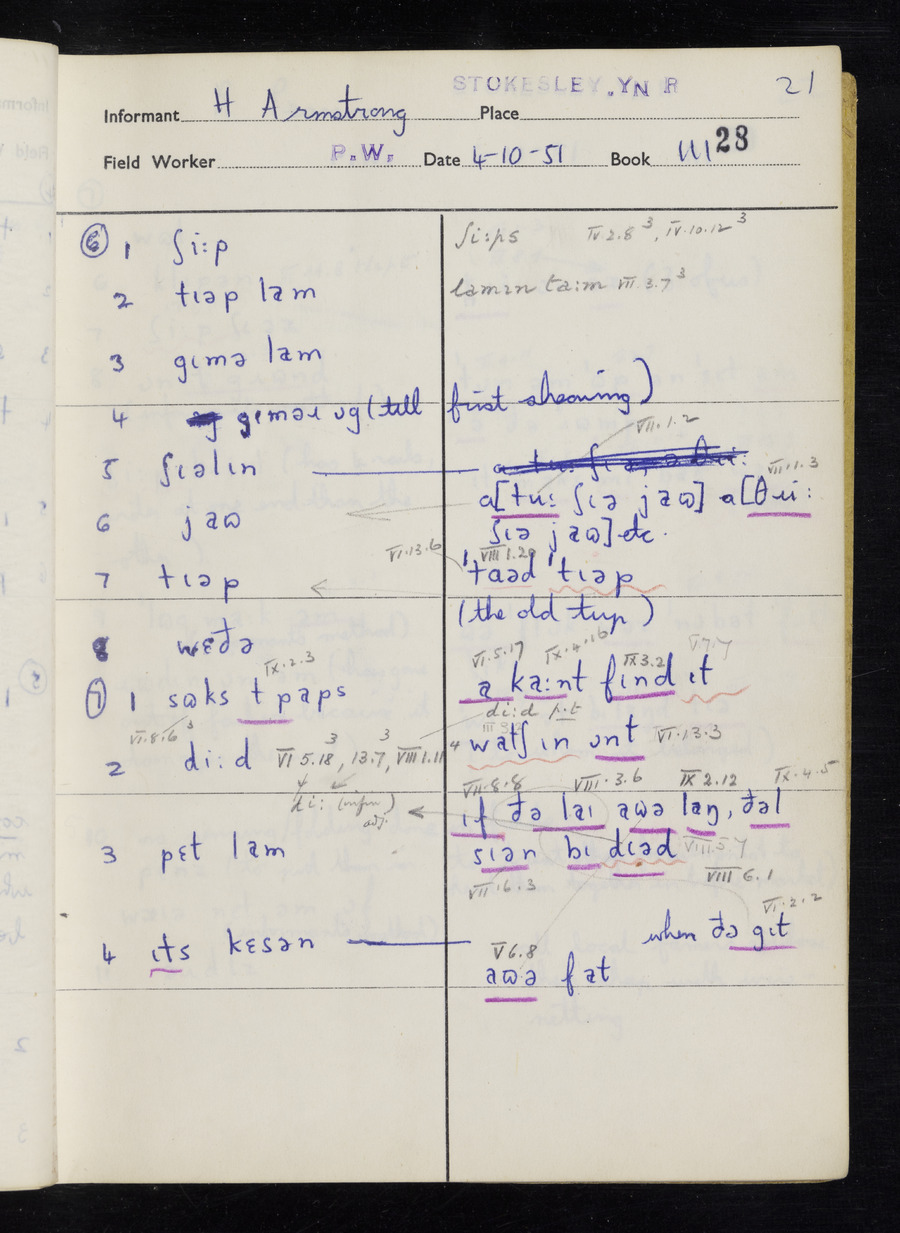 STOKESLEY, YN R 21
Informant H Armstrong Place
Field Worker P.W. Date 4-10-51 Book III 28
6 1 ʃi:p ʃi:ps IV.2.8³, IV.10.12³
2 tɪəp lam lamɪn ta:ɪm VII.3.7³
3 gɪmə lam
4 gɪməɪ ʊg (till first shearing)
VII.1.2
5 ʃɪəlɪn VII.1.3
6 jaɷ a[tu: ʃɪə jaɷ] a[θɹi:
ʃɪə jaɷ] etc.
VI.13.6 VIII 1.20
7 tɪəp 'taəd 'tɪəp
(the old tup)
8 wɛðə
VI.5.17 IX.4.16 IX 3.2 V.7.7
IX.2.3
7 1 sɷks t paps a ka:nt fɪnd ɪt
di:d p.t
VI.8.6³
2 di:d VI 5.18³, 13.7³, VIII 1.11 watʃ ɪn ʊnt VI.13.3
di: (infin) adj.
VII.8.8 VIII.3.6 IX 2.12 IX.4.5
ɪf ðə laɪ aɷə laŋ, ðəl
3 pɛt lam sɪən bɪ dɪəd VIII.5.7
VII.6.3 VIII 6.1
VI.2.2
4 ɪts kɛsən when ðə gɪt
V 6.8
aɷə fat